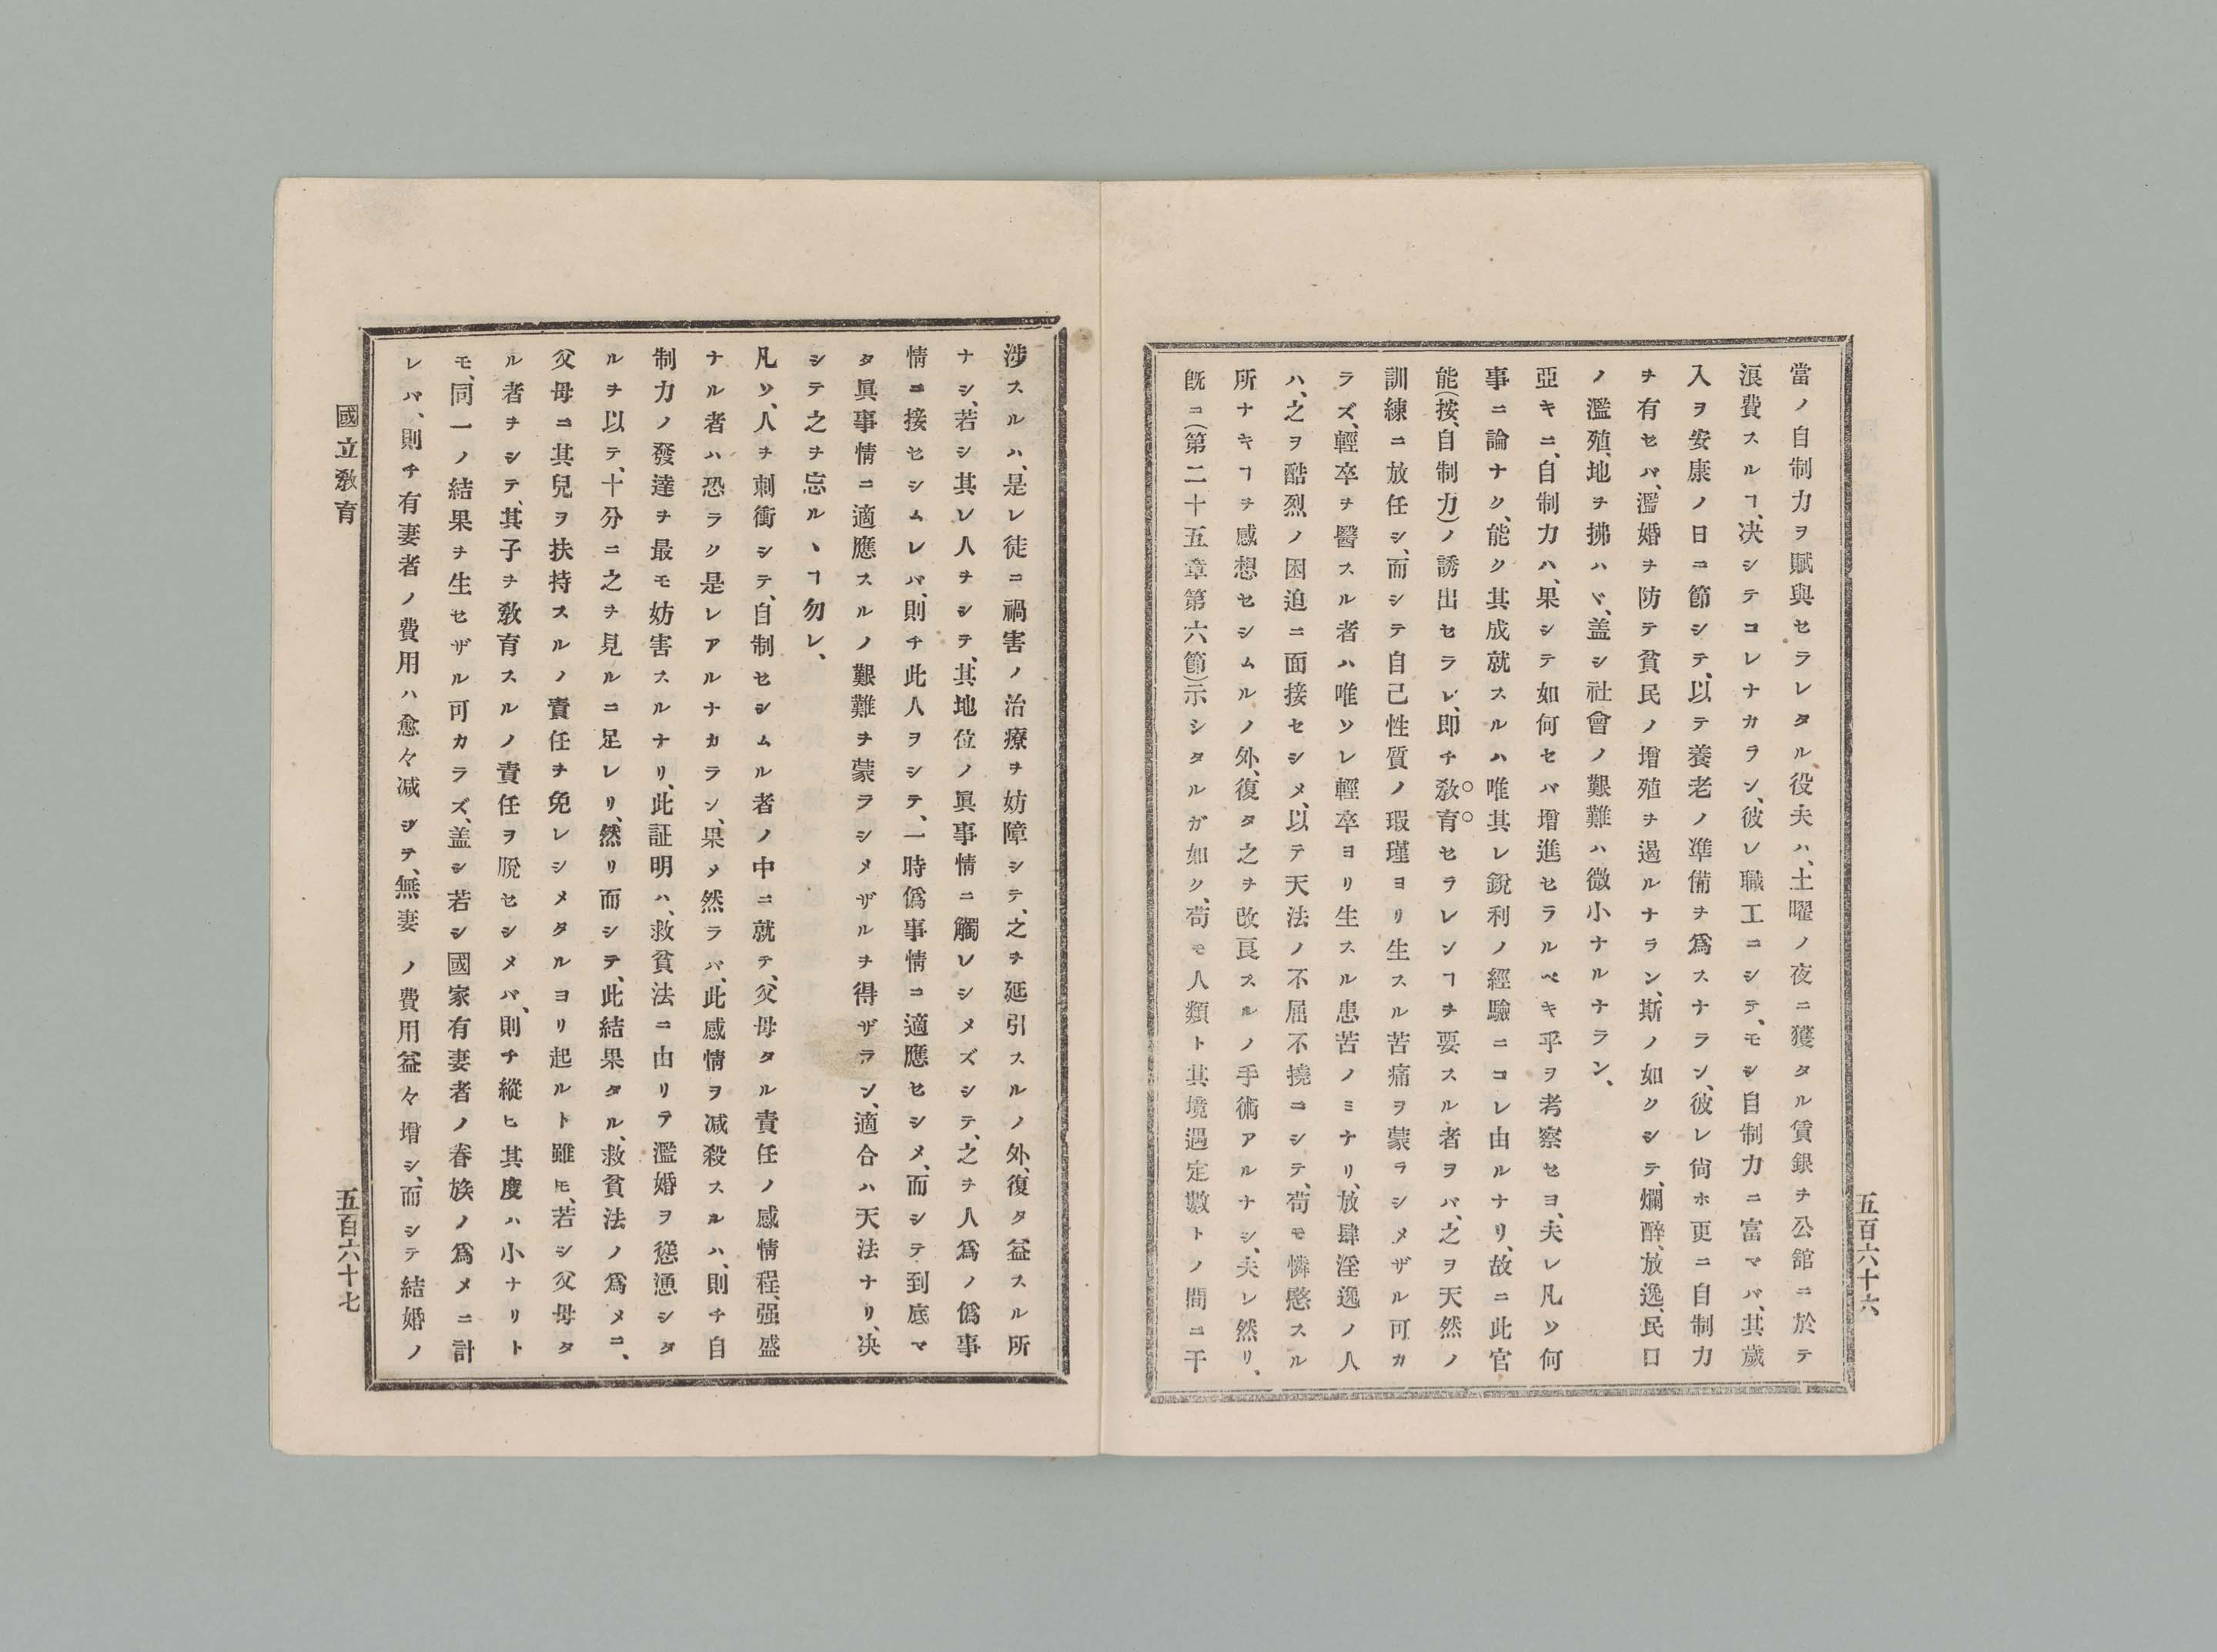 當ノ自制力ヲ賦與セラレタル、役夫ハ、土曜ノ夜ニ獲タル賃銀ヲ公舘ニ於テ
浪費スルヿ、决シテコレナカラン、彼レ職工ニシテ、モシ自制力ニ富マバ、其歲
入ヲ安康ノ日ニ節シテ、以テ養老ノ凖備ヲ爲スナラン、彼レ尙ホ更ニ自制力
ヲ有セバ、濫婚ヲ防テ貧民ノ增殖ヲ遏ルナラン、斯ノ如クシテ、爛醉、放逸、民口
ノ濫殖、地ヲ拂ハヾ、盖シ社會ノ艱難ハ微小ナルナラン、
亞キニ、自制力ハ、果シテ如何セバ增進セラルベキ乎ヲ考察セヨ、夫レ凡ソ何
事ニ論ナク、能ク其成就スルハ唯其レ銳利ノ經驗ニコレ由ルナリ、故ニ此官
能(按、自制力)ノ誘出セラレ、即チ敎育セラレンヿヲ要スル者ヲバ、之ヲ天然ノ
訓練ニ放任シ、而シテ自己性質ノ瑕瑾ヨリ生スル苦痛ヲ蒙ラシメザル可カ
ラズ、輕卒ヲ醫スル者ハ唯ソレ輕卒ヨリ生スル患苦ノミナリ、放肆淫逸ノ人
ハ、之ヲ酷烈ノ困迫ニ面接セシメ、以テ天法ノ不屈不撓ニシテ、苟モ憐愍スル
所ナキヿヲ感想セシムルノ外、復タ之ヲ改良スルノ手術アルナシ、夫レ然リ、
旣ニ(第二十五章第六節)示シタルガ如ク、苟モ人類ト其境遇定數トノ間ニ干
五百六十六
涉スルハ、是レ徒ニ禍害ノ治療ヲ妨障シテ、之ヲ延引スルノ外、復タ益スル所
ナシ、若シ其レ人ヲシテ、其地位ノ眞事情ニ觸レシメズシテ、之ヲ人爲ノ僞事
情ニ接セシムレバ、則チ此人ヲシテ、一時僞事情ニ適應セシメ、而シテ到底マ
タ眞事情ニ適應スルノ艱難ヲ蒙ラシメザルヲ得ザラン、適合ハ天法ナリ、决
シテ之ヲ忘ルヽヿ勿レ、
凡ソ、人ヲ刺衝シテ、自制セシムル者ノ中ニ就テ、父母タル責任ノ感情程、强盛
ナル者ハ恐ラク是レアルナカラン、果メ然ラバ、此感情ヲ减殺スルハ、則チ自
制力ノ發達ヲ最モ妨害スルナリ、此証明ハ、救貧法ニ由リテ濫婚ヲ慫慂シタ
ルヲ以テ、十分ニ之ヲ見ルニ足レリ、然リ而シテ、此結果タル、救貧法ノ爲メニ、
父母ニ其兒ヲ扶持スルノ責任ヲ免レシメタルヨリ起ルト雖モ、若シ父母タ
ル者ヲシテ、其子ヲ敎育スルノ責任ヲ脫セシメバ、則チ縱ヒ其度ハ小ナリト
モ、同一ノ結果ヲ生セザル可カラズ、盖シ若シ國家有妻者ノ眷族ノ爲メニ計
レバ、則チ有妻者ノ費用ハ愈々减ジテ、無妻ノ費用益々增シ、而シテ結婚ノ
國立敎育
五百六十七